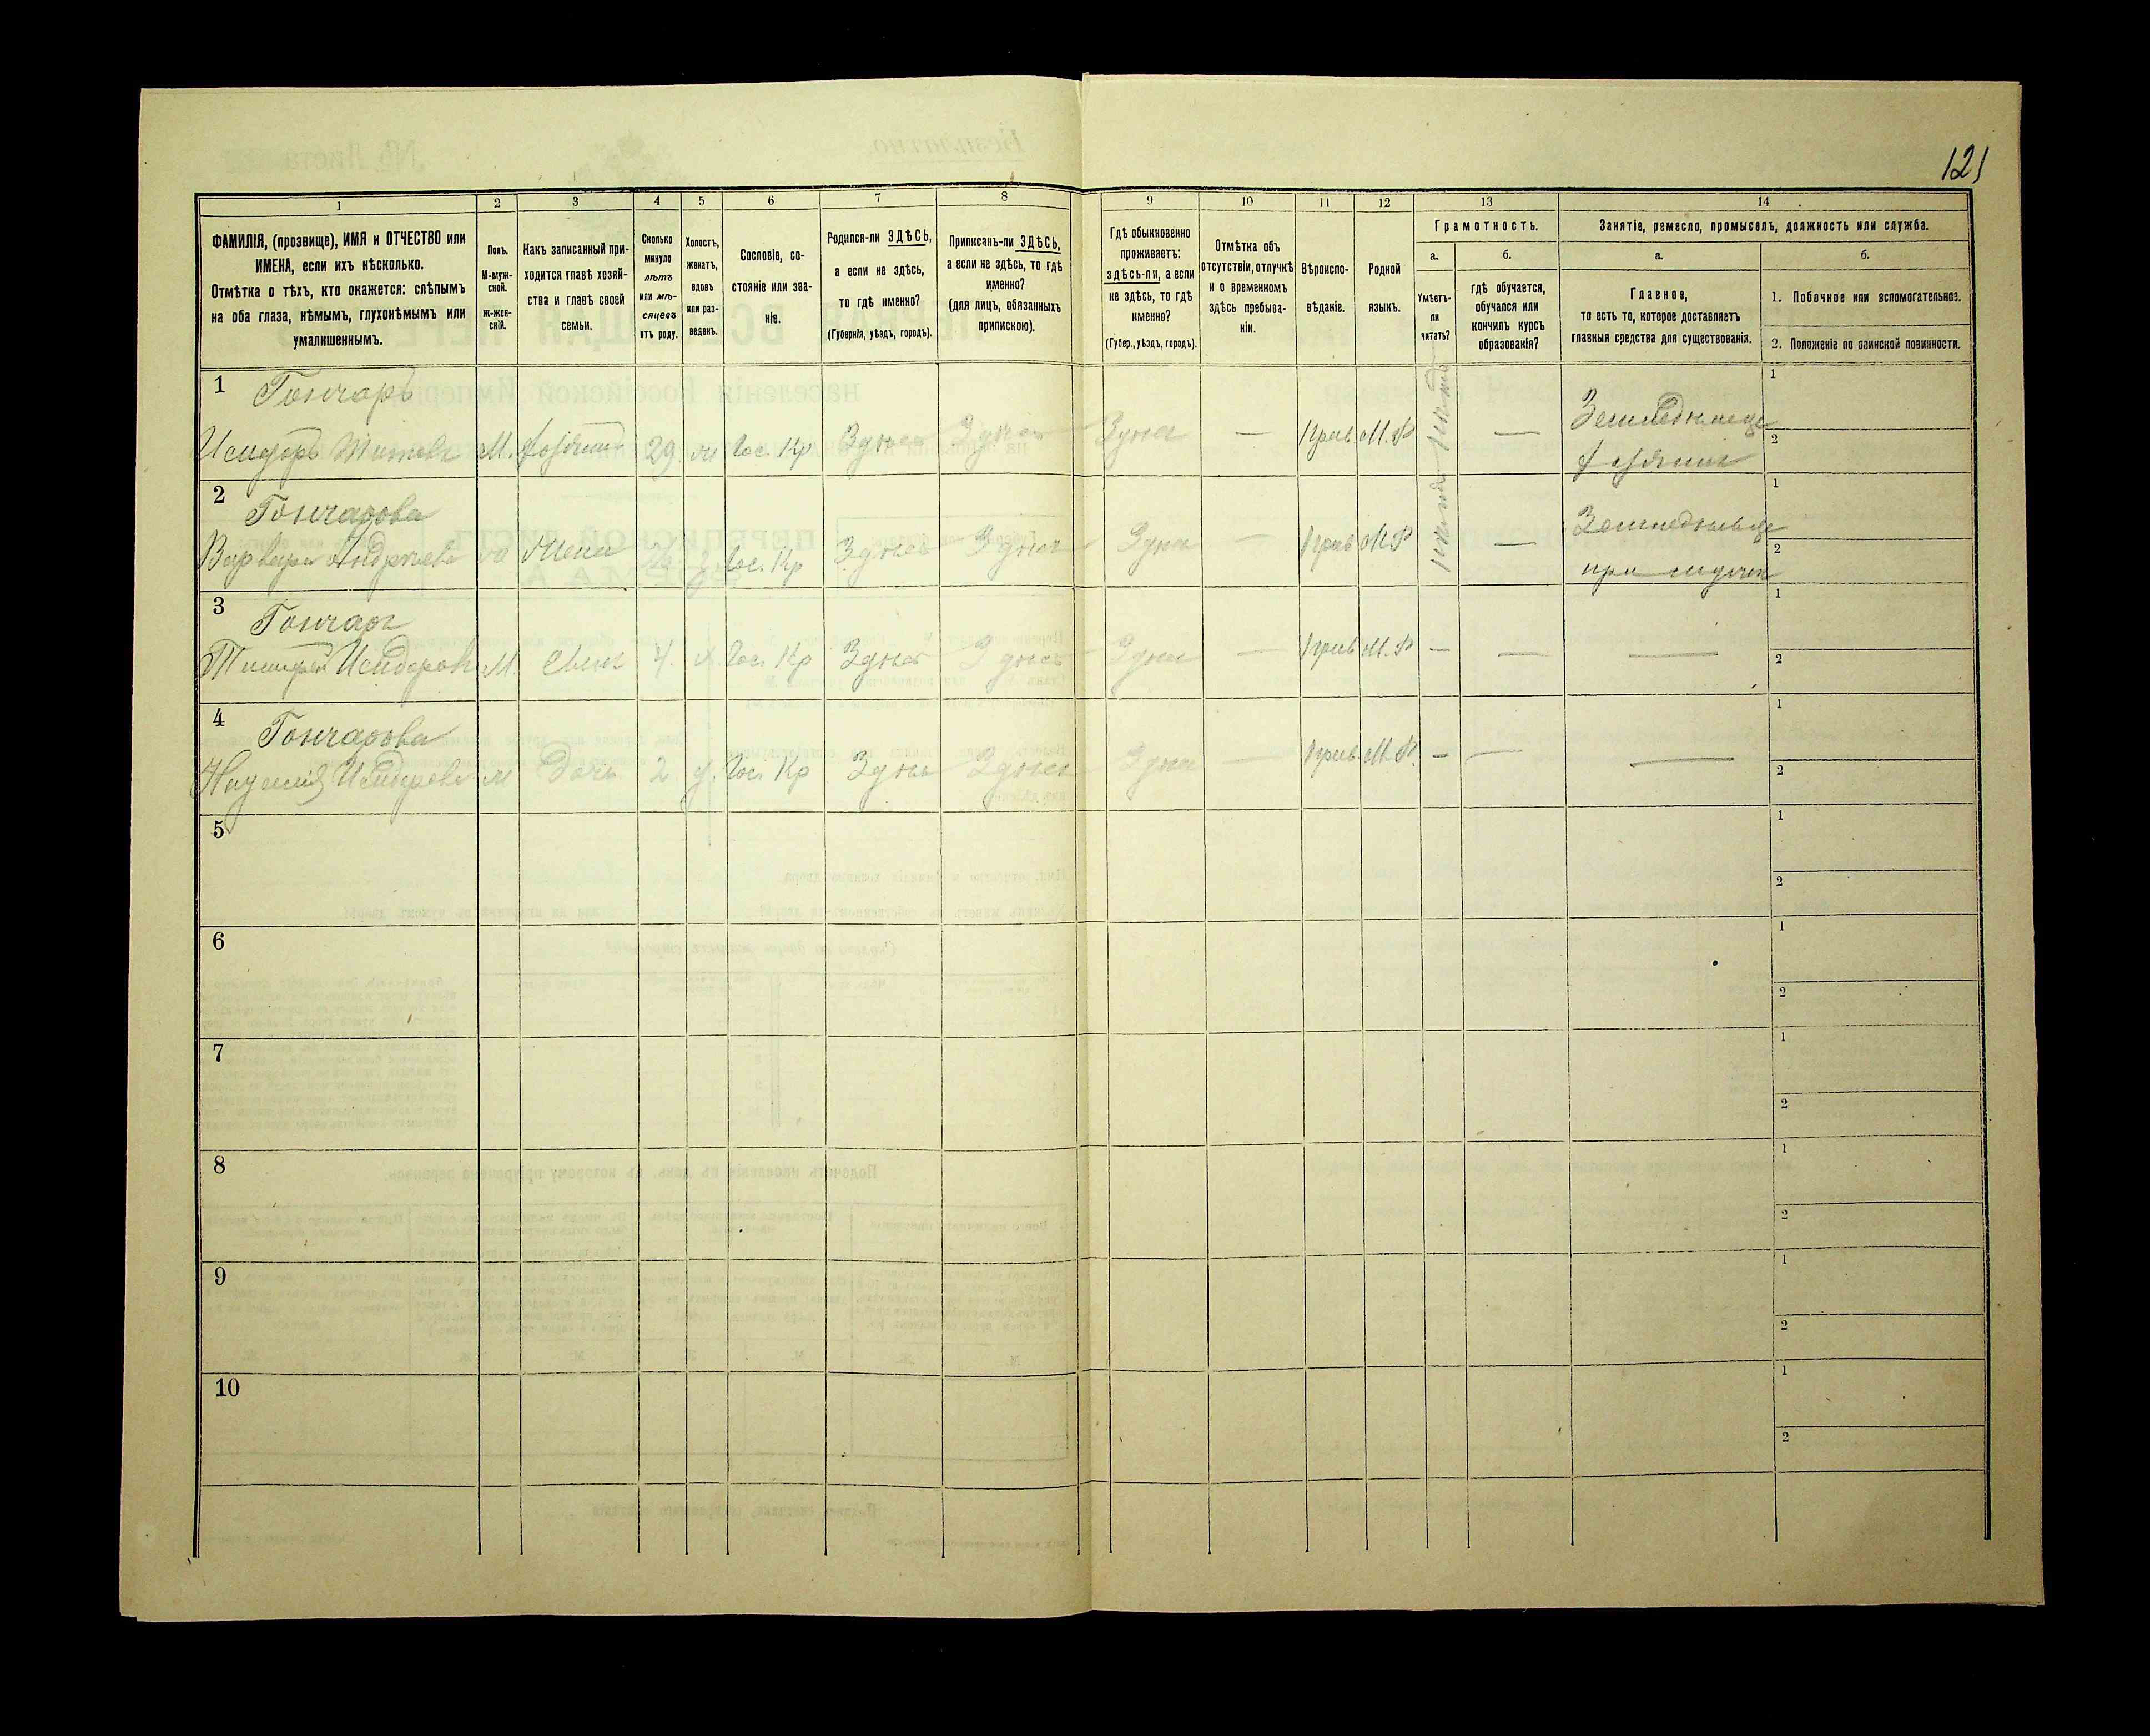 121
1
2
3
4
5
6
7
8
9
10
11
12
13
14
ФАМИЛІЯ, (прозвище), ИМЯ и ОТЧЕСТВО или
ИМЕНА, если ихъ нѣсколько.
Отмѣтка о тѣхъ, кто окажется: слѣпымъ
на оба глаза, нѣмымъ, глухонѣмымъ или
умалишеннымъ.
Полъ.
М-муж-
ской.
Ж-жен-
скій.
Какъ записанный при-
ходится главѣ хозяй-
ства и главѣ своей
семьи.
Сколько
минуло
лѣтъ
или мѣ-
сяцевъ
отъ роду.
Холостъ,
женатъ,
вдовъ
или раз-
веденъ.
Сословіе, со-
стояніе или зва-
ніе.
Родился-ли ЗДѢСЬ,
а если не здѣсь,
то гдѣ именно?
(Губернія, уѣздъ, городъ).
Приписанъ-ли ЗДѢСЬ,
а если не здѣсь, то гдѣ
именно?
(для лицъ, обязанныхъ
припискою).
Гдѣ обыкновенно
проживаетъ:
здѣсь-ли, а если
не здѣсь, то гдѣ
именно?
(Губер., уѣздъ, городъ).
Отмѣтка объ
отсутствіи, отлучкѣ
и о временномъ
здѣсь пребыва-
ніи.
Вѣроиспо-
вѣданіе.
Родной
языкъ.
Грамотность.
а.
Умѣетъ-
ли
читать?
б.
гдѣ обучается,
обучался или
кончилъ курсъ
образованія?
Занятіе, ремесло, промыселъ, должность или служба.
а.
Главное,
то есть то, которое доставляетъ
главныя средства для существованія.
б.
1. Побочное или вспомогательное.
2. Положеніе по воинской повинности.
1 Гончаръ
Исидоръ Титовъ М. хозяинъ 29 ж Гос. Кр Здѣсь Здѣсь Здѣсь — Прав М.Р —
Земледѣлецъ
хозяинъ
1
2
2 Гончарова
Варвара Андреева ж Жена з. Гос. Кр Здѣсь Здѣсь Здѣсь — Прав М.Р —
Земледѣлецъ
при мужѣ
1
2
3 Гончаръ
Тимофей Исидоровъ М. Сынъ 4. х. Гос. Кр Здѣсь Здѣсь Здѣсь — Прав М.Р — — —
1
2
4 Гончарова
Исидорова ж дочь 2 д. Гос. Кр Здѣсь Здѣсь Здѣсь — Прав М.Р. — — —
1
2
5
1
2
6
1
2
7
1
2
8
1
2
9
1
2
10
1
2